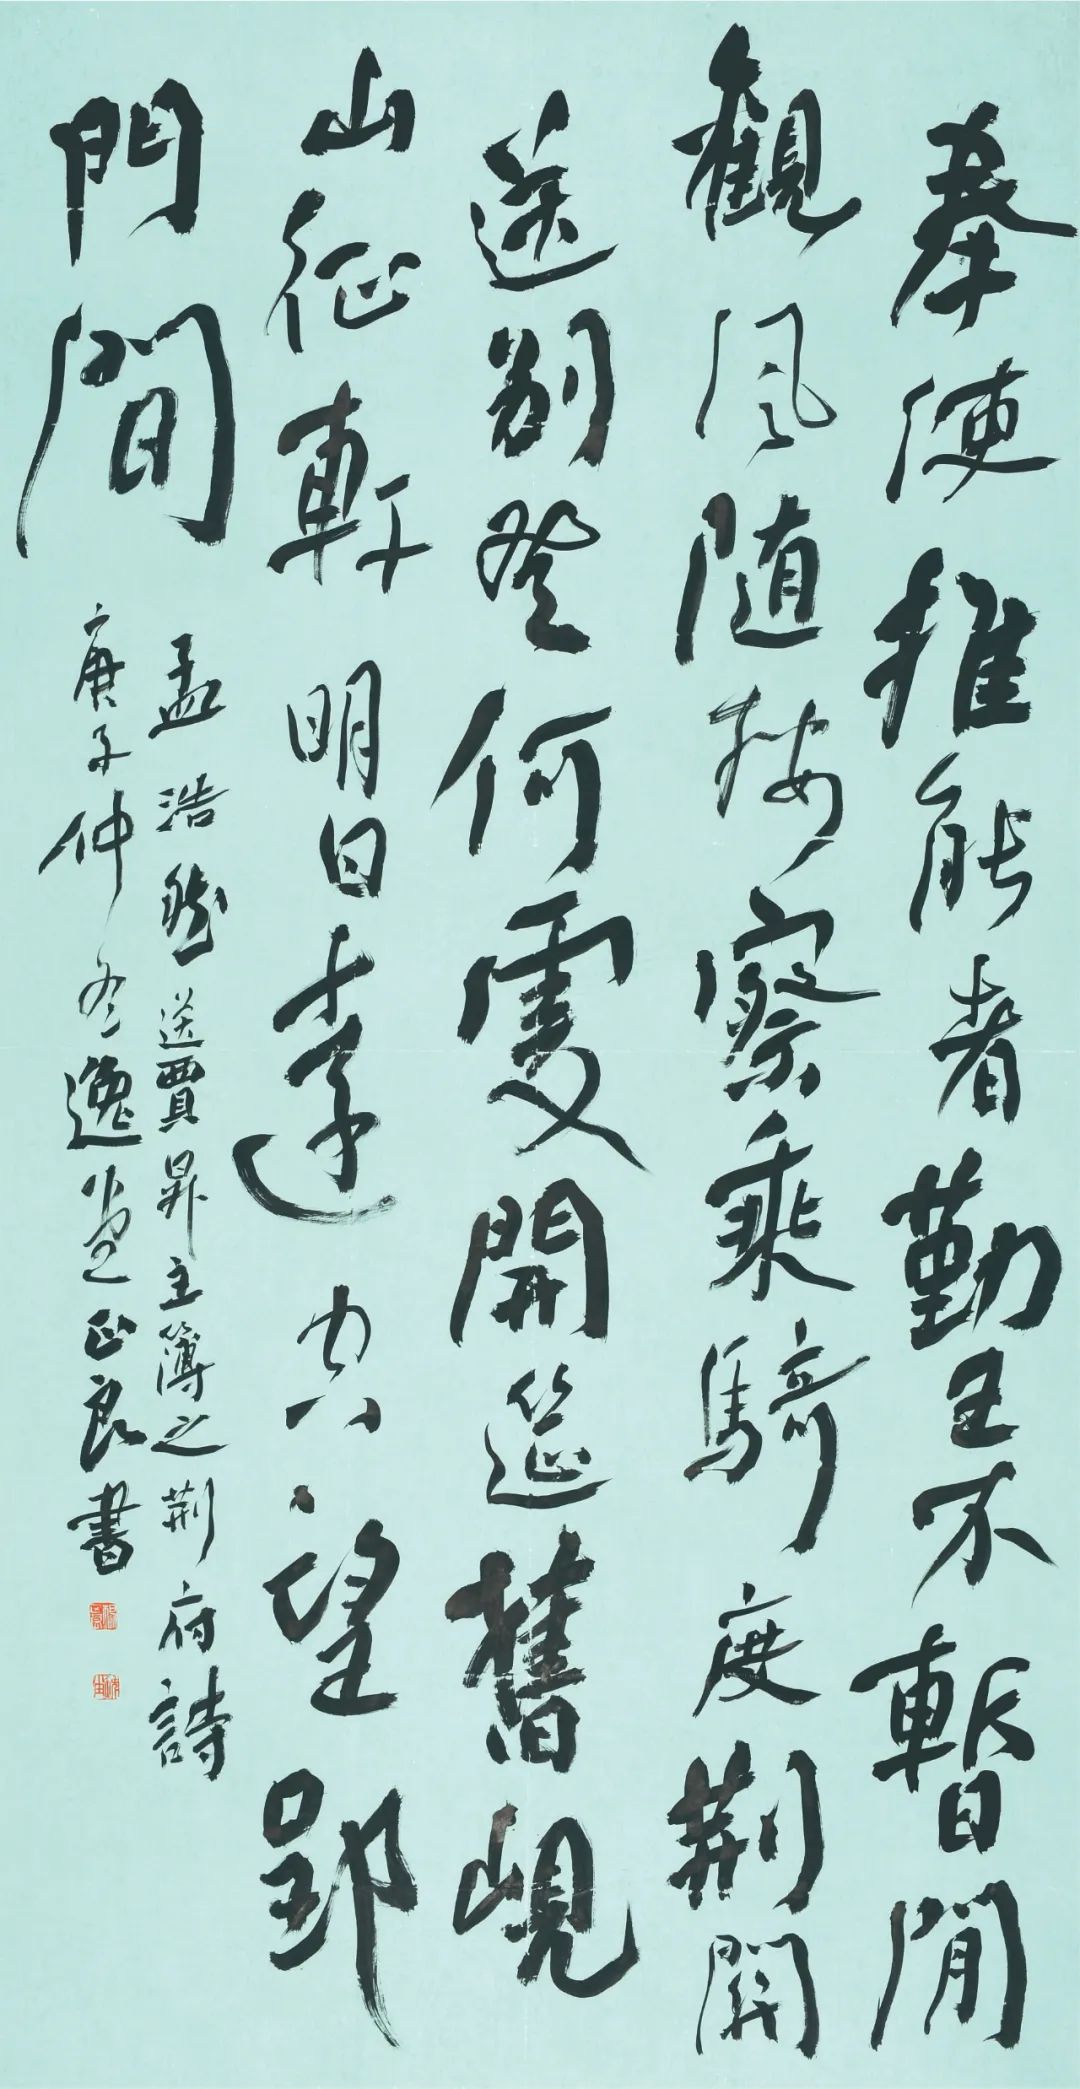 奉使推能者勤王不暫閒
觀風随按察乘騎度荊關
送別登何處開筵舊峴
山征軒明日遠空望郢
門間
孟浩然送賈昇主簿之荊府詩
庚子仲冬逸正良書